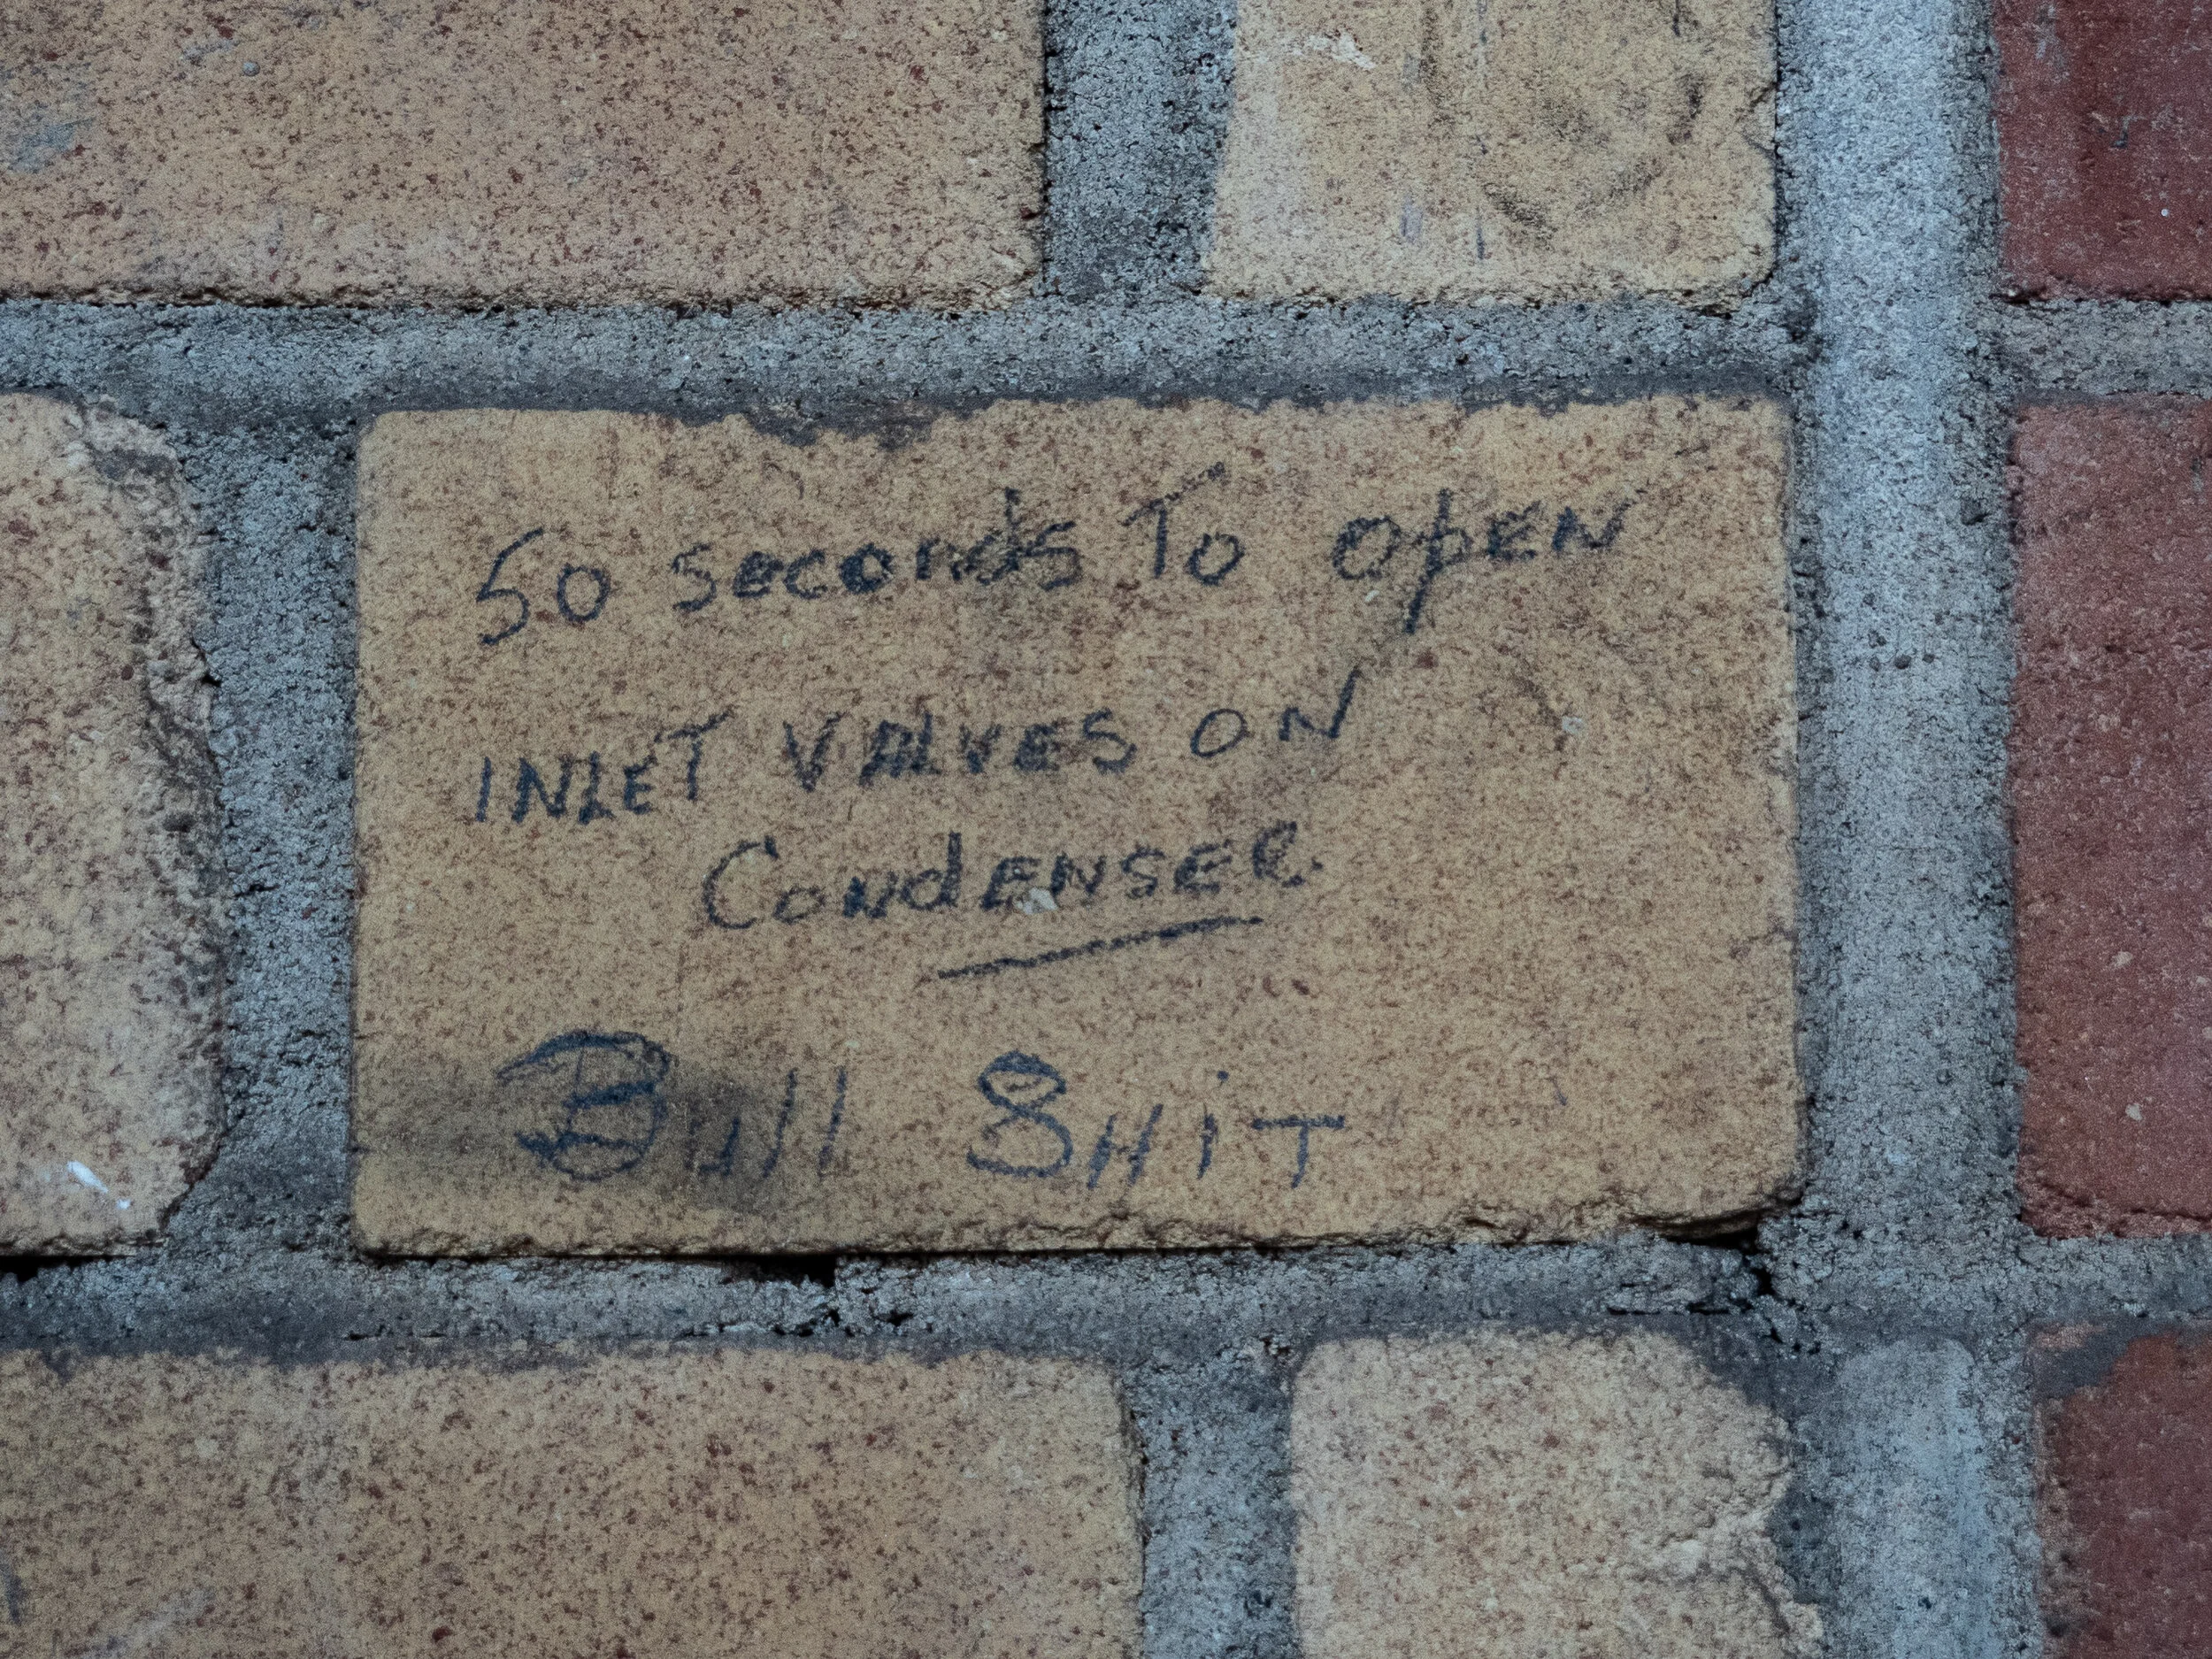 50 seconds To OpEN
INLET VALVES ON
CondENSER
Bull SHiT